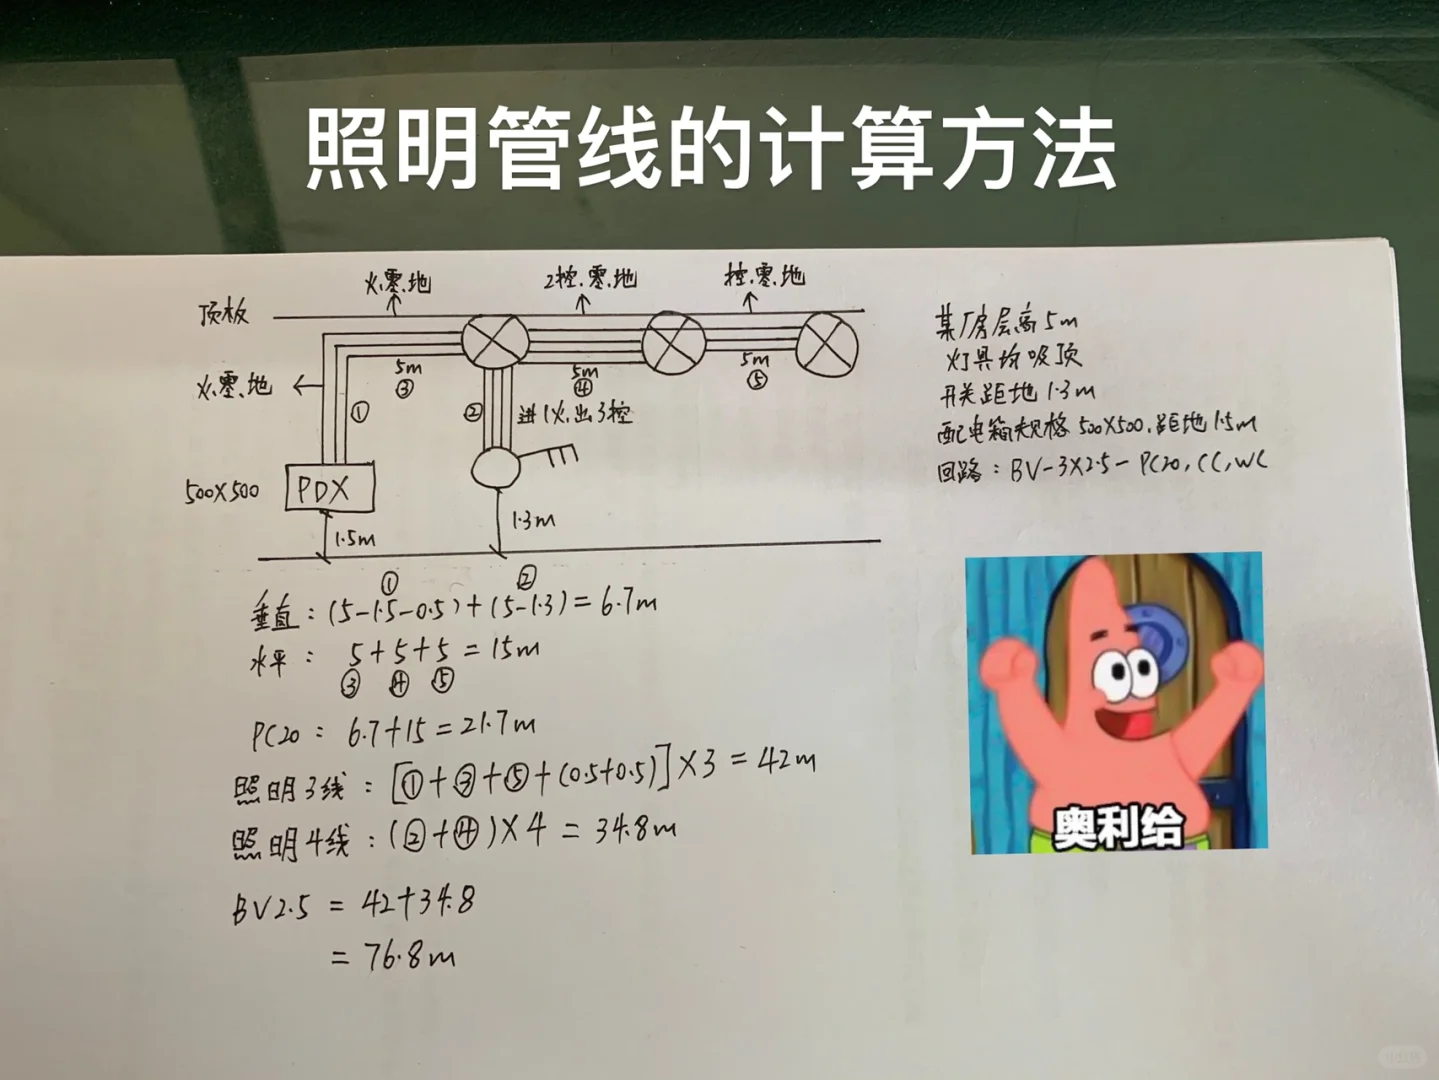 照明管线的计算方法
火.零.地
2控.零.地
控.零.地
顶板
5m
③
5m
④
5m
⑤
火.零.地
①
②
进1火.出3控
500X500
PDX
1.5m
1.3m
某厂房层高5m
灯具均吸顶
开关距地1.3m
配电箱规格500X500.距地1.5m
回路：BV-3X2.5-PC20,CC,WC
① ②
垂直：(5-1.5-0.5)+(5-1.3)=6.7m
水平： 5+5+5=15m
③ ④ ⑤
PC20：6.7+15=21.7m
照明3线：[①+③+⑤+(0.5+0.5)]X3=42m
照明4线：(②+④)X4=34.8m
BV2.5 = 42+34.8
= 76.8m
奥利给